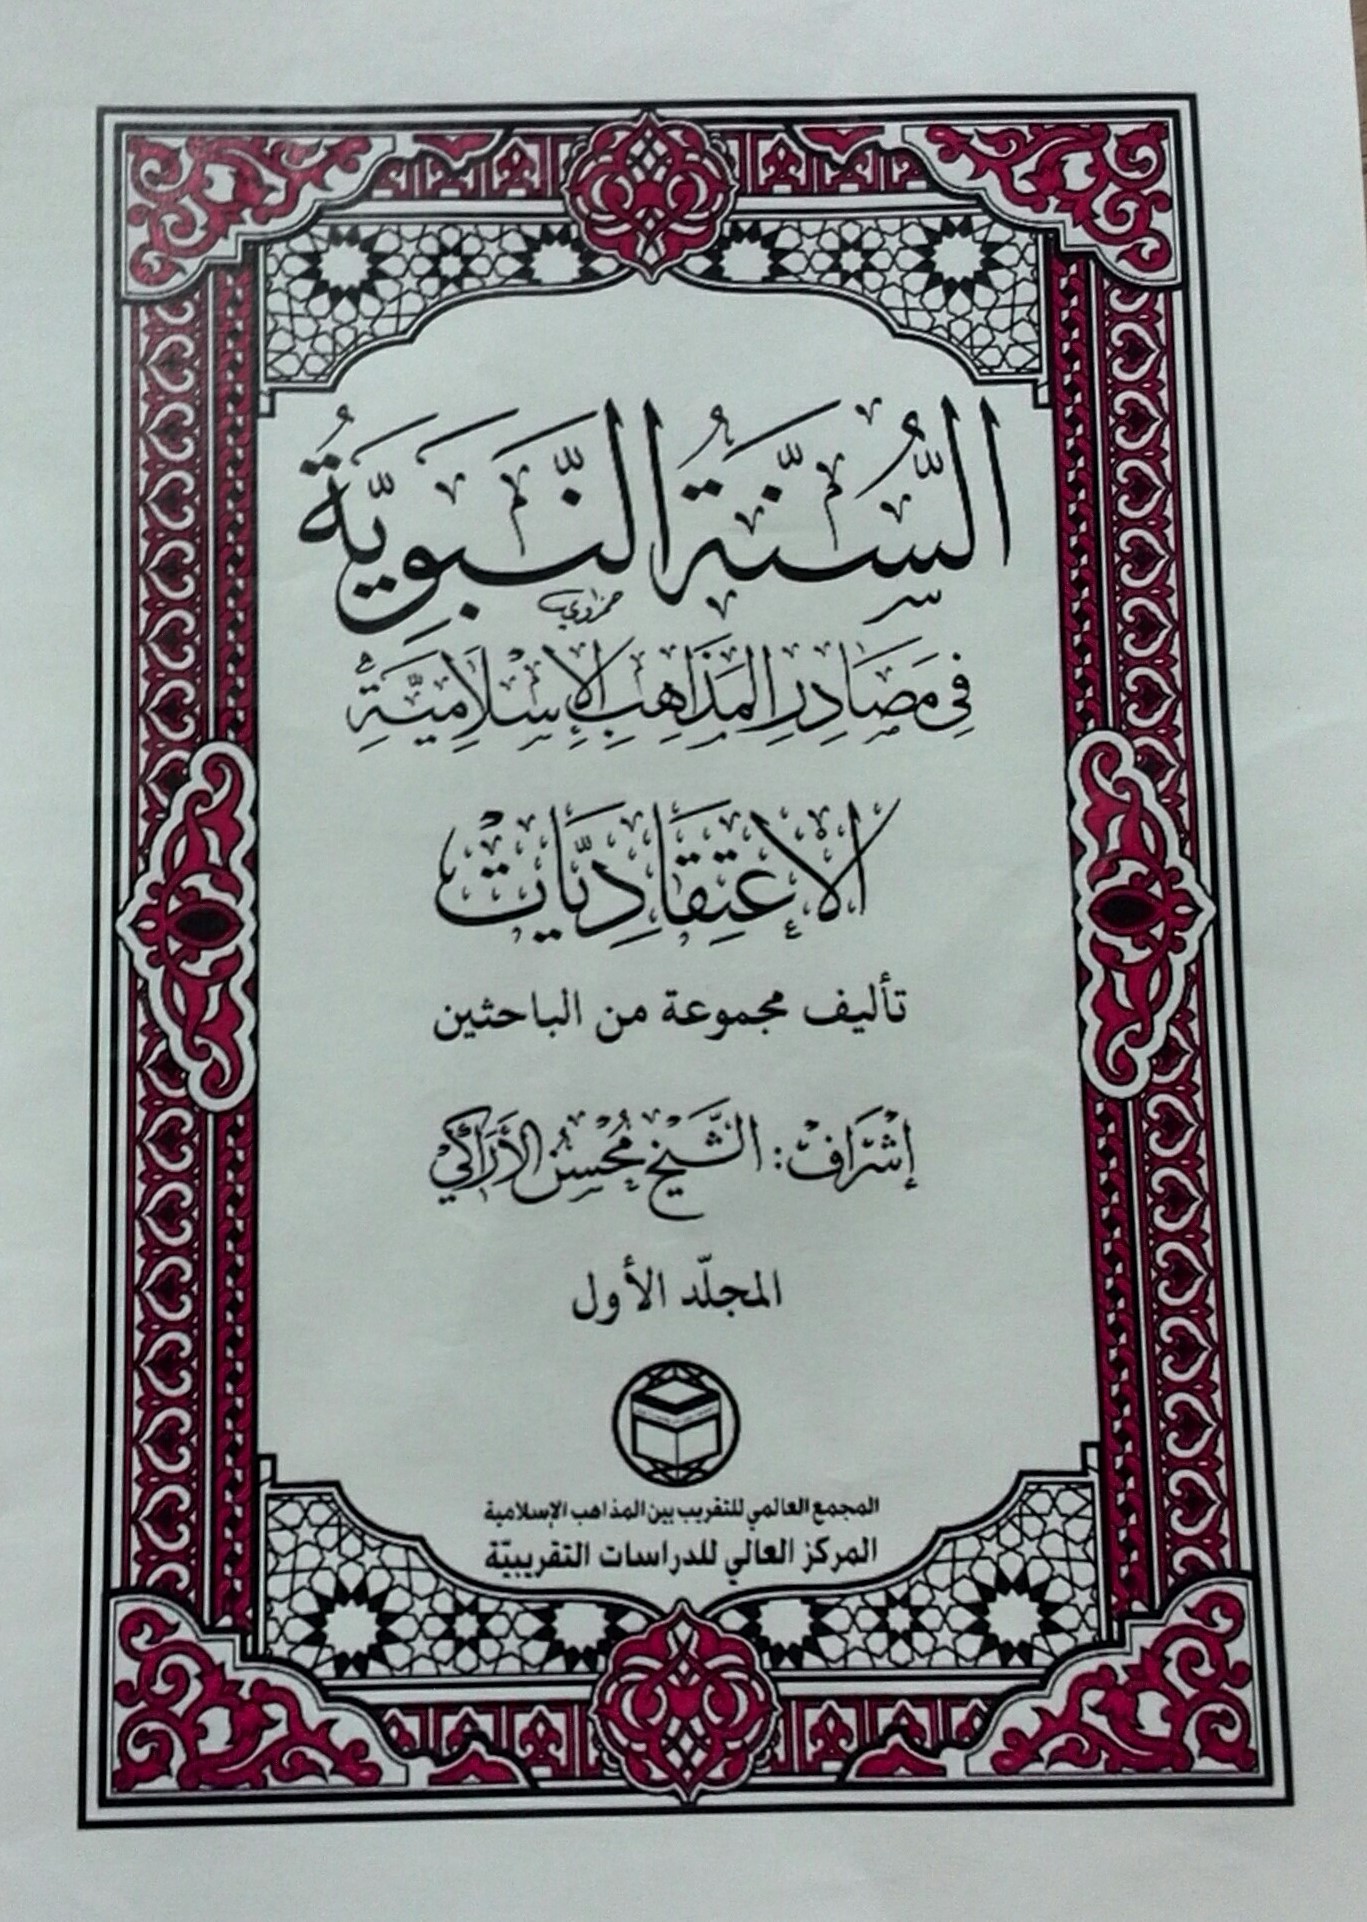 السُّنَّةُ النَّبَوِيَّةُ
فِي مَصَادِرِ المَذَاهِبِ الإِسْلَامِيَّةِ
الإِعْتِقَادِيَّاتْ
تأليف مجموعة من الباحثين
إشْرَافْ: الشَّيْخ مُحْسِنُ الأَرَاكِي
المجلّد الأول
المجمع العالمي للتقريب بين المذاهب الإسلامية
المركز العالي للدراسات التقريبيّة